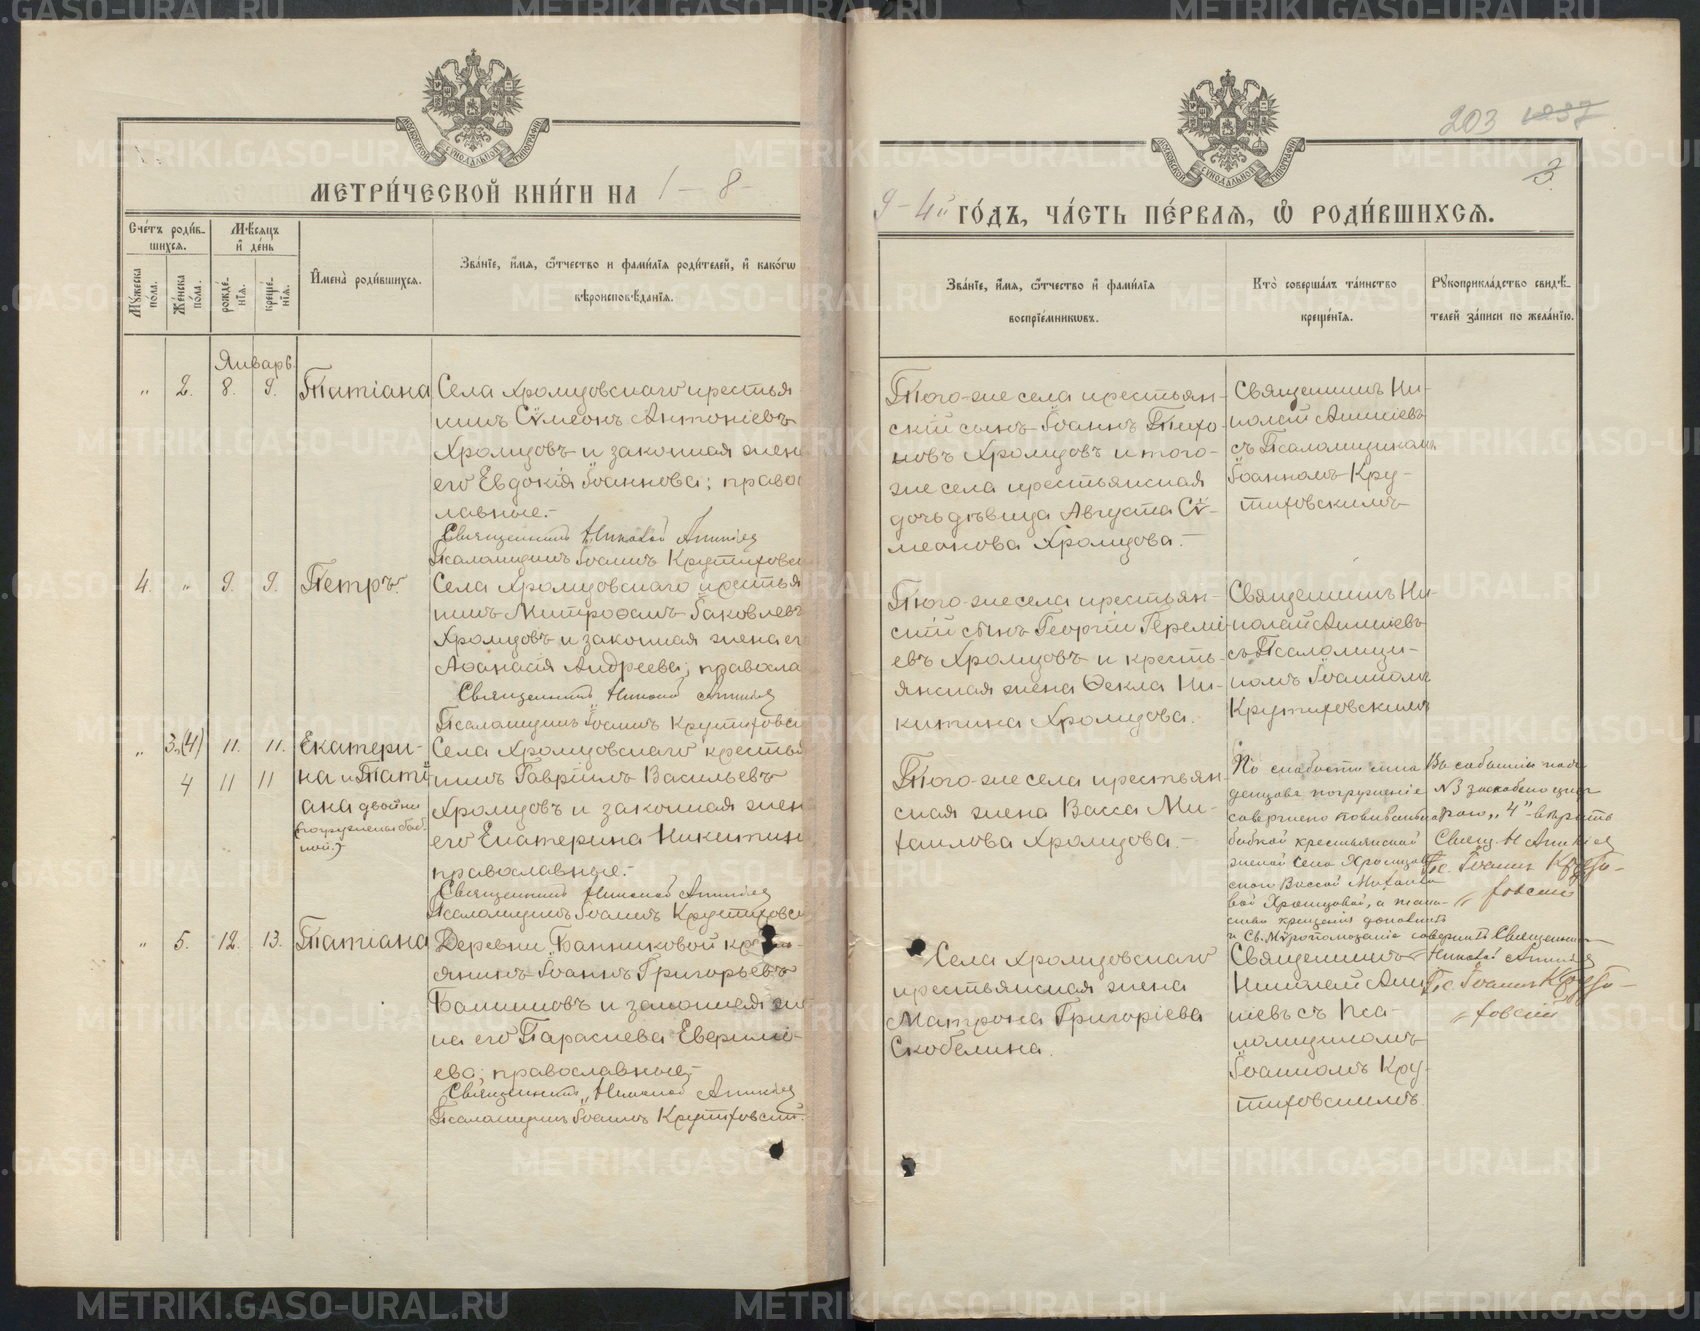 МЕТРИ́ЧЕСКОЙ КНИ́ГИ НА 1 – 8 –
Счéтъ роди́в-
шихся.
Мѣсяцъ
и̂ де́нь
Мꙋжеска
пола.
Же́нска
по́ла.
рожде́-
нїя.
креще́-
нїя.
И̂мена̀ роди́вшихся.
Зва́нїе, и̂мя, ѻ҆тчество и фами́лїя роди́телей, и̂ како́гω
вѣроисповѣ́данїя.
Январь.
„ 2. 8. 9. Татіана
Села Хромцовскаго крестья
нинъ Сѵмеонъ Антоніевъ
Хромцовъ и законная жен
его Евдокія Іоаннова; право
лавные.-
Священникъ Николай Аникіев
Псаломщикъ Іоаннъ Крутиховс
4. „ 9. 9. Петръ.
Села Хромцовскаго крестья
нинъ Митрофанъ Іаковлевъ
Хромцовъ и законная жена ег
Аѳанасія Андреева; правосла
Священникъ Николай Аникіев
Псаломщикъ Іоаннъ Крутиховск
„ 3.(4) 11. 11. Екатери-
4 11 11 на и Таті
ана двойни
(погружены баб-
кой.)
Села Хромцовскаго кресть
нинъ Гавріилъ Васильевъ
Хромцовъ и законная жен
его Екатерина Никитин
православные.-
Священникъ Николай Аникіев
Псаломщикъ Іоаннъ Крутиховск
„ 5. 12. 13. Татіана
Деревни Банниковой кр
янинъ Іоаннъ Григорьевъ
Банниковъ и законная же
на его Параскева Евфиміо-
ева; православные.-
Священникъ Николай Аникіев
Псаломщикъ Іоаннъ Крутиховскій.
203 1237
3.
9 – 4й ГО́ДЪ, ЧА́СТЬ ПЕ́РВАЯ, Ѽ РОДИ́ВШИХСЯ.
Зва́нїе, и̂мя, ѻ҆тчество и̂ фами́лїя
воспрїе́мникωвъ.
Кто̀ соверша́лъ та́инство
креще́нїя.
Рꙋкоприкла́дство свидѣ́-
телей за́писи по жела́нїю.
Того-же села крестьян-
скій сынъ Іоаннъ Тихо-
новъ Хромцовъ и того-
же села крестьянская
дочь дѣвица Августа Сѵ-
меонова Хромцова.-
Священникъ Ни-
колай Аникіевъ
съ Псаломщикомъ
Іоанномъ Кру-
тиховскимъ
Того-же села крестьян-
скій сынъ Георгій Іеремі-
евъ Хромцовъ и кресть-
янская жена Ѳекла Ни-
китина Хромцова.
Священникъ Ни-
колай Аникіевъ
съ Псаломщи-
комъ Іоанномъ
Крутиховскимъ
Того-же села крестьян-
ская жена Васса Ми-
хаилова Хромцова.-
По слабости мла
денцевъ погруженіе
совершено повивальною
бабкой крестьянской
женой села Хромцов
скаго Вассой Михаило
вой Хромцовой, а таин-
ство крещенія дополнилъ
и Св. Мѵропомазаніе совершилъ Священникъ
Николай Аникіев
Пс. Іоаннъ Крути-
„ ховскій
№ 3 цифр
рою „4" вѣрить
Свящ. Н Аникіев
Пс. Іоаннъ Крути-
„ ховскій
Села Хромцовскаго
крестьянская жена
Матрона Григоріева
Скобелина.
Священникъ
Николай Ани
кіевъ съ Пса-
ломщикомъ
Іоанномъ Кру-
тиховскимъ.
METRIKI.GASO-URAL.RU